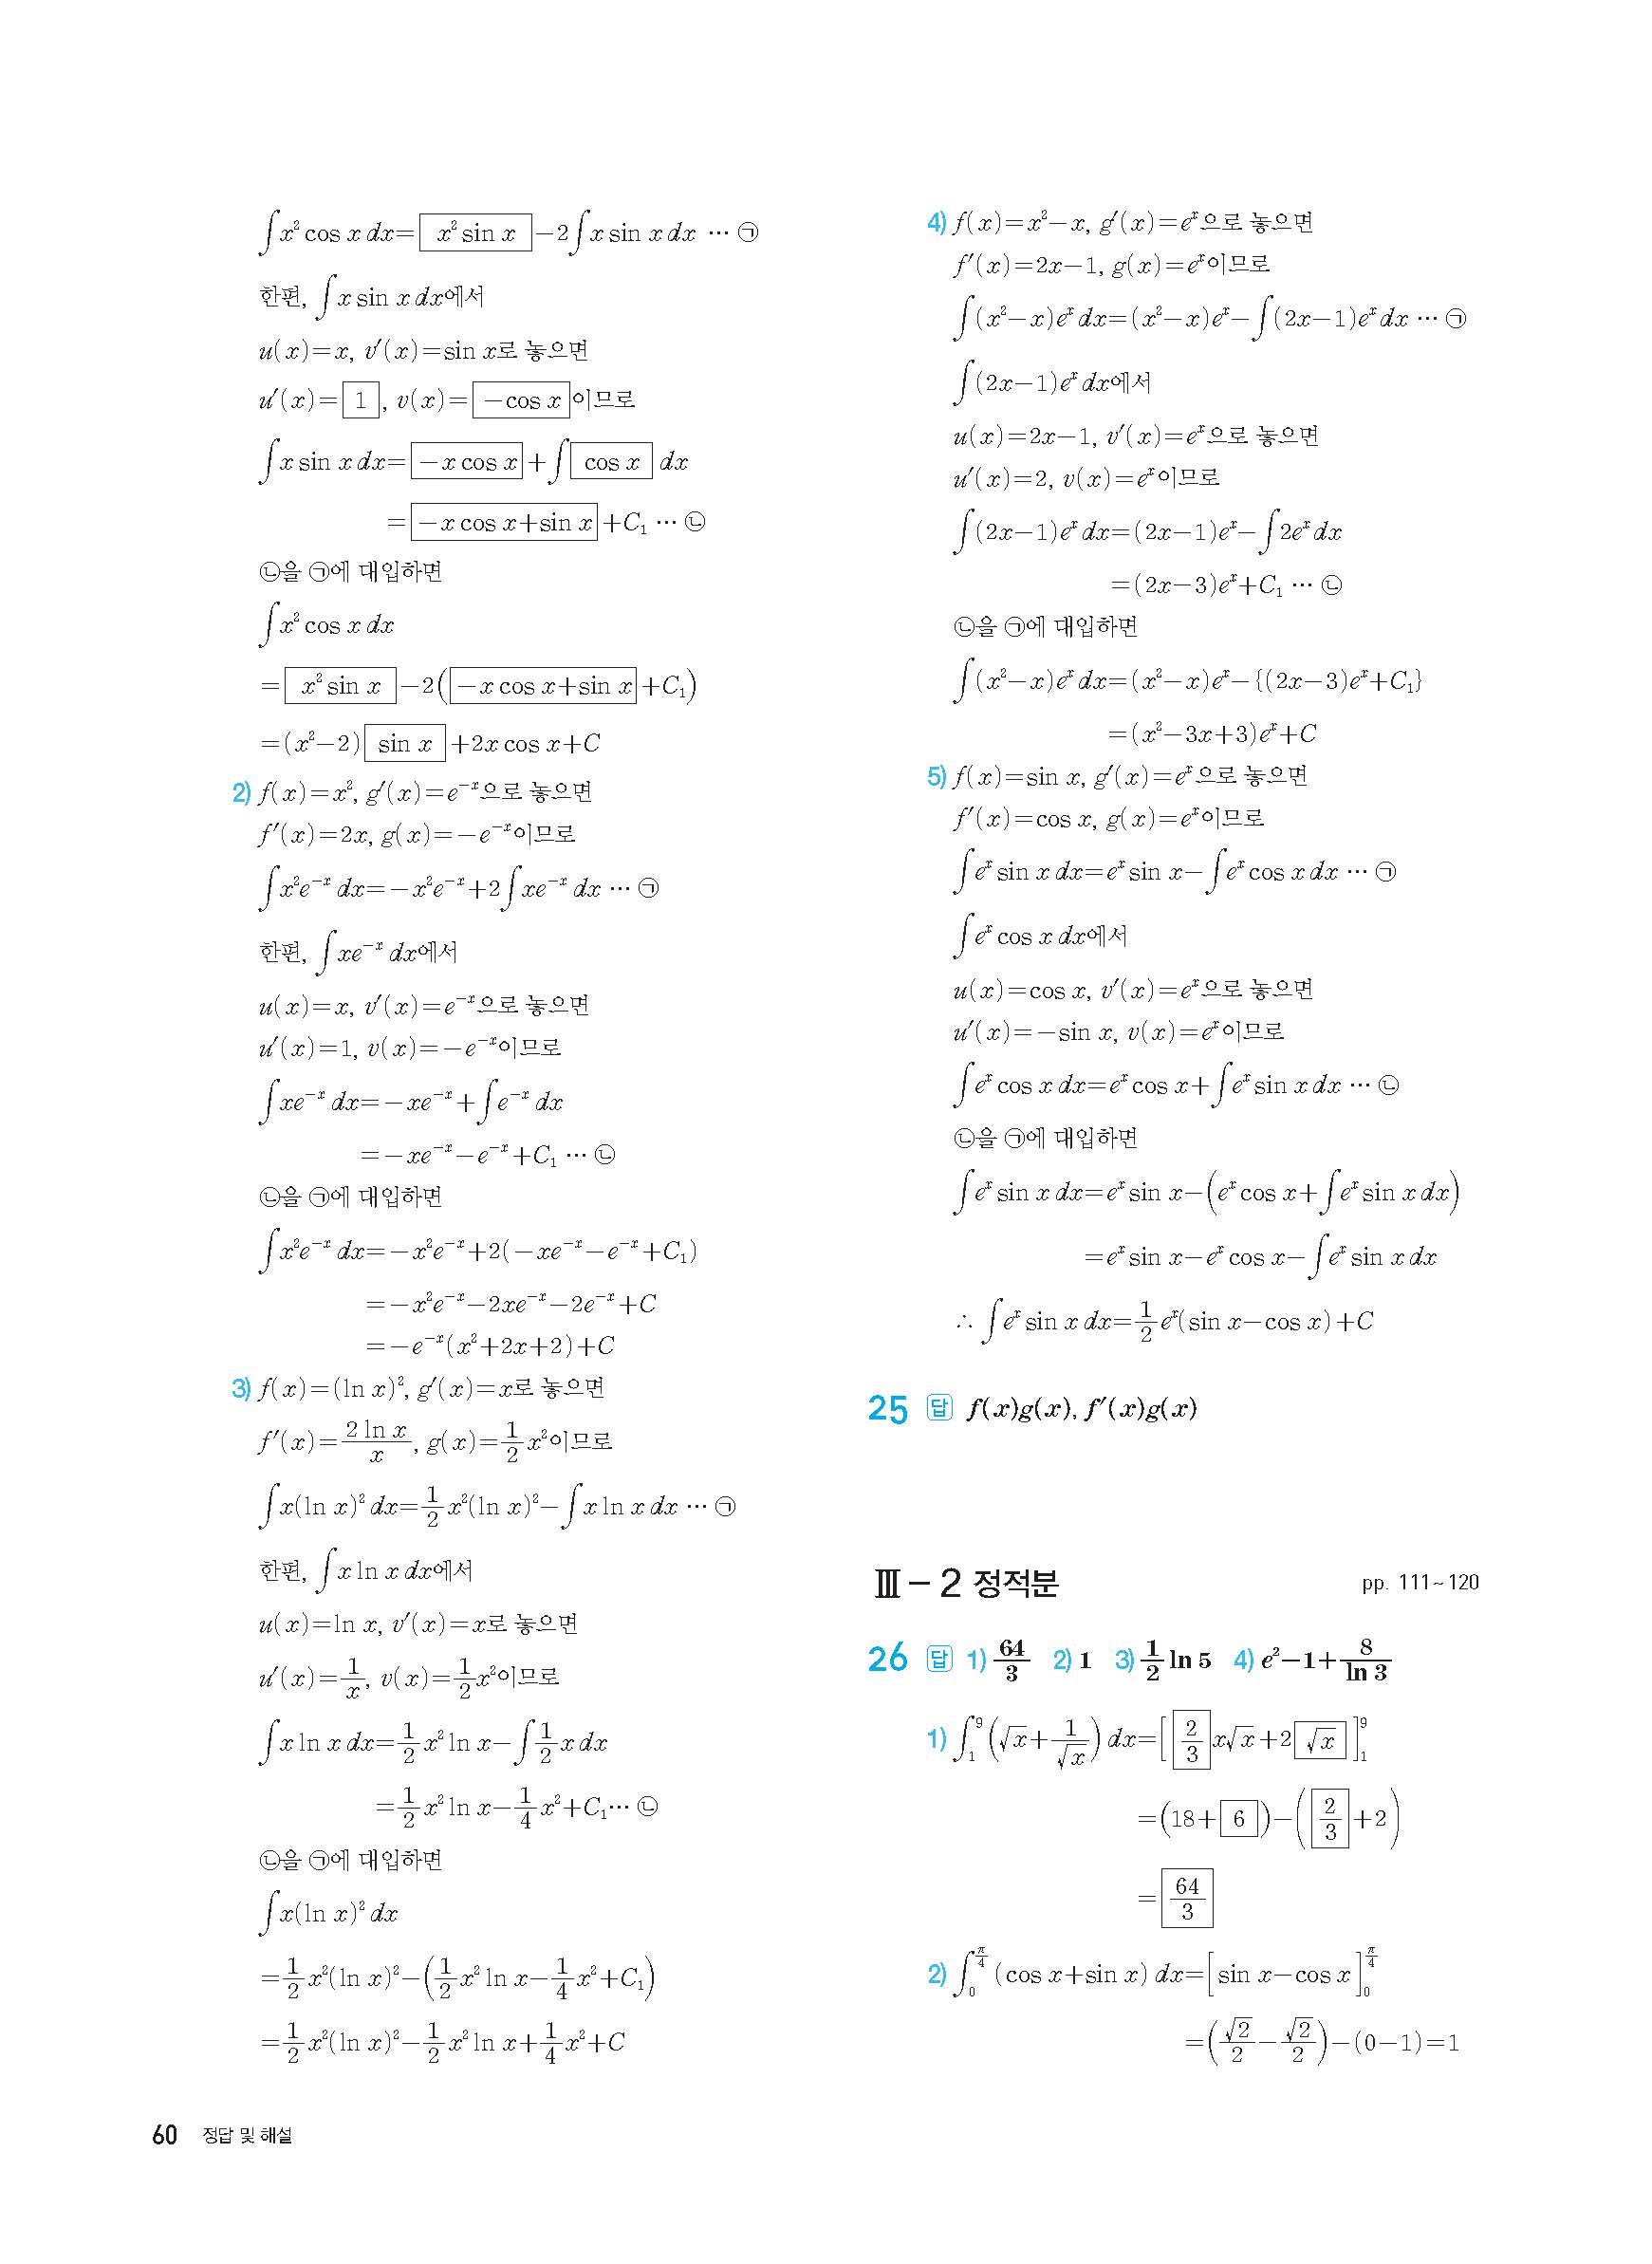 ∫x²cos x dx= x²sin x −2∫x sin x dx ⋯ ㉠
한편, ∫x sin x dx에서
u(x)=x, v′(x)=sin x로 놓으면
u′(x)= 1 , v(x)= −cos x 이므로
∫x sin x dx= −x cos x +∫ cos x dx
= −x cos x+sin x +C₁ ⋯ ㉡
㉡을 ㉠에 대입하면
∫x²cos x dx
= x²sin x −2( −x cos x+sin x +C₁)
=(x²−2) sin x +2x cos x+C
2) f(x)=x², g′(x)=e⁻ˣ으로 놓으면
f′(x)=2x, g(x)=−e⁻ˣ이므로
∫x²e⁻ˣ dx=−x²e⁻ˣ+2∫xe⁻ˣ dx ⋯ ㉠
한편, ∫xe⁻ˣ dx에서
u(x)=x, v′(x)=e⁻ˣ으로 놓으면
u′(x)=1, v(x)=−e⁻ˣ이므로
∫xe⁻ˣ dx=−xe⁻ˣ+∫e⁻ˣ dx
=−xe⁻ˣ−e⁻ˣ+C₁ ⋯ ㉡
㉡을 ㉠에 대입하면
∫x²e⁻ˣ dx=−x²e⁻ˣ+2(−xe⁻ˣ−e⁻ˣ+C₁)
=−x²e⁻ˣ−2xe⁻ˣ−2e⁻ˣ+C
=−e⁻ˣ(x²+2x+2)+C
3) f(x)=(ln x)², g′(x)=x로 놓으면
f′(x)=2 ln x/x, g(x)=1/2 x²이므로
∫x(ln x)² dx=1/2 x²(ln x)²−∫x ln x dx ⋯ ㉠
한편, ∫x ln x dx에서
u(x)=ln x, v′(x)=x로 놓으면
u′(x)=1/x, v(x)=1/2 x²이므로
∫x ln x dx=1/2 x² ln x−∫1/2 x dx
=1/2 x² ln x−1/4 x²+C₁⋯ ㉡
㉡을 ㉠에 대입하면
∫x(ln x)² dx
=1/2 x²(ln x)²−(1/2 x² ln x−1/4 x²+C₁)
=1/2 x²(ln x)²−1/2 x² ln x+1/4 x²+C
4) f(x)=x²−x, g′(x)=eˣ으로 놓으면
f′(x)=2x−1, g(x)=eˣ이므로
∫(x²−x)eˣ dx=(x²−x)eˣ−∫(2x−1)eˣ dx ⋯ ㉠
∫(2x−1)eˣ dx에서
u(x)=2x−1, v′(x)=eˣ으로 놓으면
u′(x)=2, v(x)=eˣ이므로
∫(2x−1)eˣ dx=(2x−1)eˣ−∫2eˣ dx
=(2x−3)eˣ+C₁ ⋯ ㉡
㉡을 ㉠에 대입하면
∫(x²−x)eˣ dx=(x²−x)eˣ−{(2x−3)eˣ+C₁}
=(x²−3x+3)eˣ+C
5) f(x)=sin x, g′(x)=eˣ으로 놓으면
f′(x)=cos x, g(x)=eˣ이므로
∫eˣ sin x dx=eˣ sin x−∫eˣ cos x dx ⋯ ㉠
∫eˣ cos x dx에서
u(x)=cos x, v′(x)=eˣ으로 놓으면
u′(x)=−sin x, v(x)=eˣ이므로
∫eˣ cos x dx=eˣ cos x+∫eˣ sin x dx ⋯ ㉡
㉡을 ㉠에 대입하면
∫eˣ sin x dx=eˣ sin x−(eˣ cos x+∫eˣ sin x dx)
=eˣ sin x−eˣ cos x−∫eˣ sin x dx
∴ ∫eˣ sin x dx=1/2 eˣ(sin x−cos x)+C
25 답 f(x)g(x), f′(x)g(x)
Ⅲ−2 정적분 pp. 111~120
26 답 1) 64/3 2) 1 3) 1/2 ln 5 4) e²−1+8/ln 3
1) ∫₁⁹(√x+1/√x) dx=[ 2/3 x√x+2 √x ]₁⁹
=(18+ 6 )−( 2/3 +2)
= 64/3
2) ∫₀^(π/4) (cos x+sin x) dx=[sin x−cos x]₀^(π/4)
=(√2/2−√2/2)−(0−1)=1
60 정답 및 해설